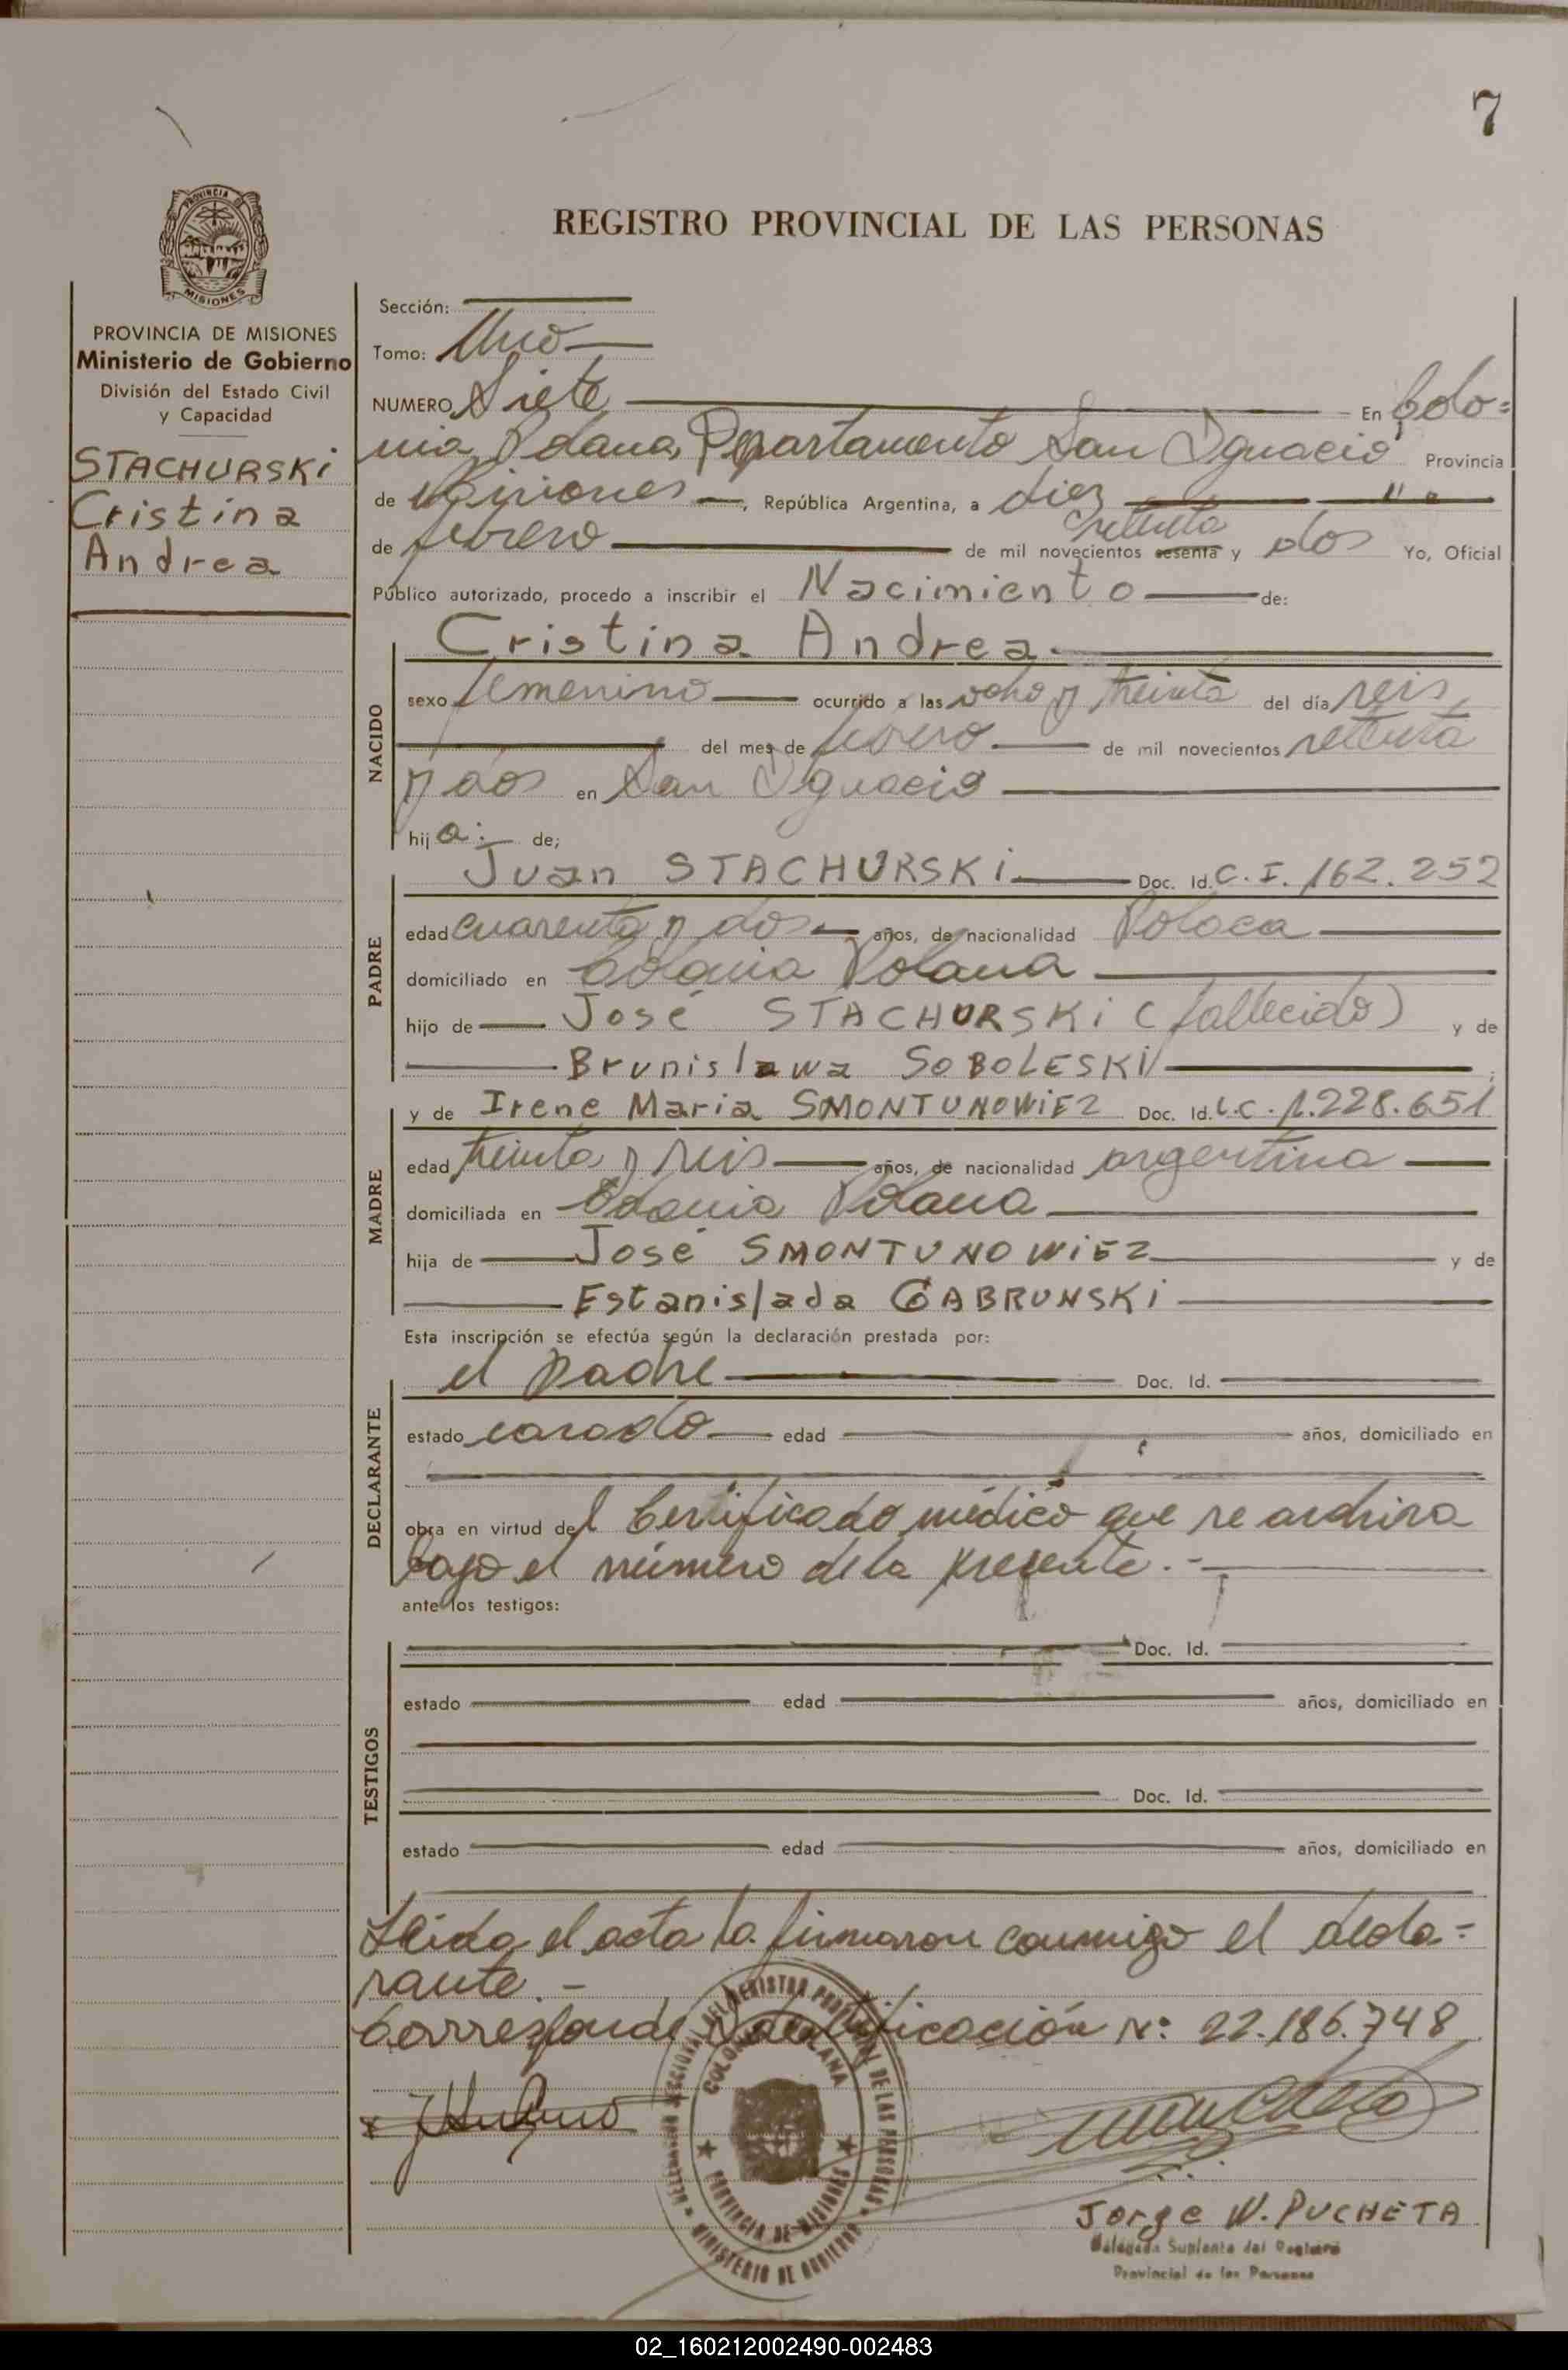 7
PROVINCIA DE
MISIONES
REGISTRO PROVINCIAL DE LAS PERSONAS
PROVINCIA DE MISIONES
Ministerio de Gobierno
División del Estado Civil
y Capacidad
STACHURSKi
Cristina
Andrea
Sección:
Tomo: Uno
NUMERO Siete En Colo=
nia Polana, Departamento San Ignacio Provincia
de Misiones, República Argentina, a diez
de febrero de mil novecientos sesenta setenta y dos Yo, Oficial
Público autorizado, procedo a inscribir el Nacimiento de:
NACIDO
Cristina Andrea.
sexo femenino ocurrido a las ocho y treinta del día seis
del mes de febrero de mil novecientos setenta
y dos en San Ignacio
hija: de;
PADRE
Juan STACHURSKi Doc. Id. C.I. 162.252
edad cuarenta y dos años, de nacionalidad Polaca
domiciliado en Colonia Polana
hijo de José STACHURSKi (fallecido) y de
Brunislawa SOBOLESKi
MADRE
y de Irene Maria SMONTUNOWiEZ Doc. Id. L.C. 1.228.651
edad treinta y seis años, de nacionalidad argentina
domiciliada en Colonia Polana
hija de José SMONTUNOWiEZ y de
Estanislada GABRUNSKi
Esta inscripción se efectúa según la declaración prestada por:
DECLARANTE
el padre Doc. Id.
estado casado edad años, domiciliado en
obra en virtud del Certificado médico que se archiva
bajo el número de la presente.-
ante los testigos:
TESTIGOS
Doc. Id.
estado edad años, domiciliado en
Doc. Id.
estado edad años, domiciliado en
Leída el acta la firmaron conmigo el decla=
rante.-
Corresponde Identificación Nº 22.186.748
COLONIA POLANA
PROVINCIA DE MISIONES
MINISTERIO DE GOBIERNO
Jorge W. PUCHETA
Delegado Suplente del Registro
Provincial de las Personas
02_160212002490-002483